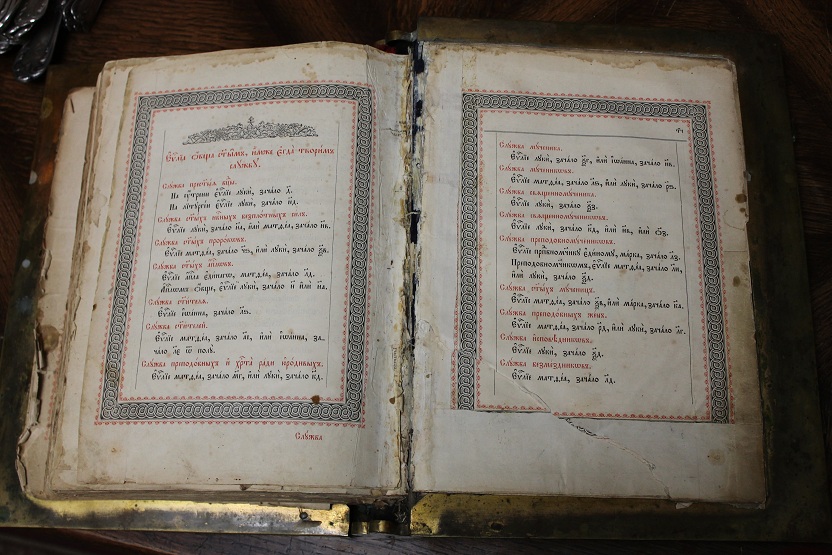 Є҆ѵⷢ҇лїа ѻ҆́бща ст҃ы̑мъ, и҆̀мже є҆гда̀ твори́мъ
слꙋ́жбꙋ.
Слꙋ́жба прест҃ы́ѧ бц҃ы.
На ᲂу҆́трени є҆ѵⷢ҇лїе лꙋкѝ, зача́ло д҃.
На лїтꙋргі́и є҆ѵⷢ҇лїе лꙋкѝ, зача́ло н҃д.
Слꙋ́жба ст҃ы́хъ нбⷭ҇ныхъ безпло́тныхъ си́лъ.
Є҆ѵⷢ҇лїе лꙋкѝ, зача́ло н҃а, и҆лѝ матѳе́а, зача́ло н҃в.
Слꙋ́жба ст҃ы́хъ прорѡ́кѡвъ.
Є҆ѵⷢ҇лїе матѳе́а, зача́ло ч҃ѕ, и҆лѝ лꙋкѝ, зача́ло ѯ҃в.
Слꙋ́жба ст҃ы́хъ а҆пⷭ҇лѡвъ.
Є҆ѵⷢ҇лїе а҆пⷭ҇ла є҆ди́нагѡ, матѳе́а, зача́ло л҃д.
А҆пⷭ҇лѡмъ ѻ҆́бще, є҆ѵⷢ҇лїе лꙋкѝ, зача́ло н҃ и҆лѝ н҃а.
Слꙋ́жба ст҃и́телѧ.
Є҆ѵⷢ҇лїе і҆ѡа́нна, зача́ло л҃ѕ.
Слꙋ́жба ст҃и́телей.
Є҆ѵⷢ҇лїе матѳе́а, зача́ло а҃і, и҆лѝ і҆ѡа́нна, за-
ча́ло л҃є ѿ по́лꙋ.
Слꙋ́жба преподо́бныхъ и҆ хрⷭ҇та̀ ра́ди ю҆ро́дивыхъ.
Є҆ѵⷢ҇лїе матѳе́а, зача́ло м҃г, и҆лѝ лꙋкѝ, зача́ло к҃д.
Слꙋ́жба
Слꙋ́жба мꙋ́ченика.
Є҆ѵⷢ҇лїе лꙋкѝ, зача́ло ѯ҃г, и҆лѝ і҆ѡа́нна, зача́ло н҃в.
Слꙋ́жба мꙋ́ченикѡвъ.
Є҆ѵⷢ҇лїе матѳе́а, зача́ло л҃ѕ, и҆лѝ лꙋкѝ, зача́ло р҃ѕ.
Слꙋ́жба сщ҃енномꙋ́ченика.
Є҆ѵⷢ҇лїе лꙋкѝ, зача́ло ѯ҃з.
Слꙋ́жба сщ҃енномꙋ́ченикѡвъ.
Є҆ѵⷢ҇лїе лꙋкѝ, зача́ло к҃д, и҆лѝ о҃з.
Слꙋ́жба преподобномꙋ́ченикѡвъ.
Є҆ѵⷢ҇лїе прпⷣбномч҃нкꙋ є҆ди́номꙋ, ма́рка, зача́ло л҃з.
Преподобномч҃нкѡмъ, є҆ѵⷢ҇лїе матѳе́а, зача́ло л҃и,
и҆лѝ лꙋкѝ, зача́ло ѯ҃д.
Слꙋ́жба ст҃ы́хъ мꙋ́ченицъ.
Є҆ѵⷢ҇лїе матѳе́а, зача́ло ѯ҃в, и҆лѝ ма́рка, зача́ло к҃а.
Слꙋ́жба преподо́бныхъ же́нъ.
Є҆ѵⷢ҇лїе матѳе́а, зача́ло р҃д, и҆лѝ лꙋкѝ, зача́ло л҃г.
Слꙋ́жба и҆сповѣ́дникѡвъ.
Є҆ѵⷢ҇лїе лꙋкѝ, зача́ло ѯ҃д.
Слꙋ́жба безмⷥдникѡвъ.
Є҆ѵⷢ҇лїе матѳе́а, зача́ло л҃д.